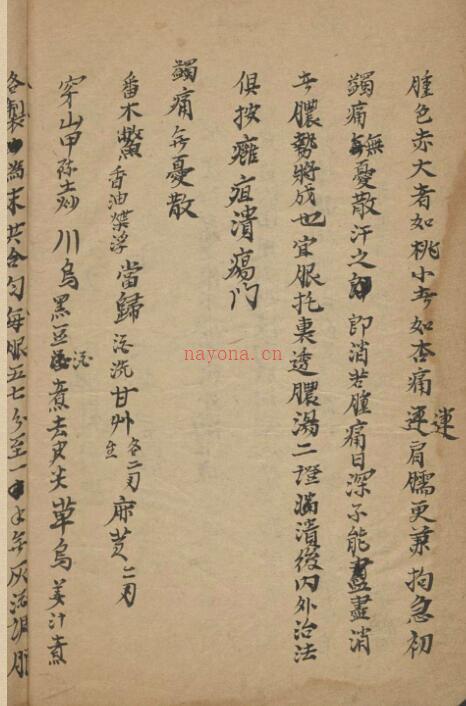 腫色赤大者如桃小者如杏痛連肩臑更兼拘急初
連
蠲痛無憂散汗之即消若腫痛日深不能盡消
者膿勢將成也宜服托裏透膿湯二證潰後內外治法
俱按癰疽潰瘍門
蠲痛無憂散
番木鱉香油煠浮當歸酒洗甘艸生各二
穿山甲陳土炒川烏黑豆酒煮去皮尖草烏姜汁煮
各製為末共合勻每服五七分至一無灰酒調服
nayona.cn